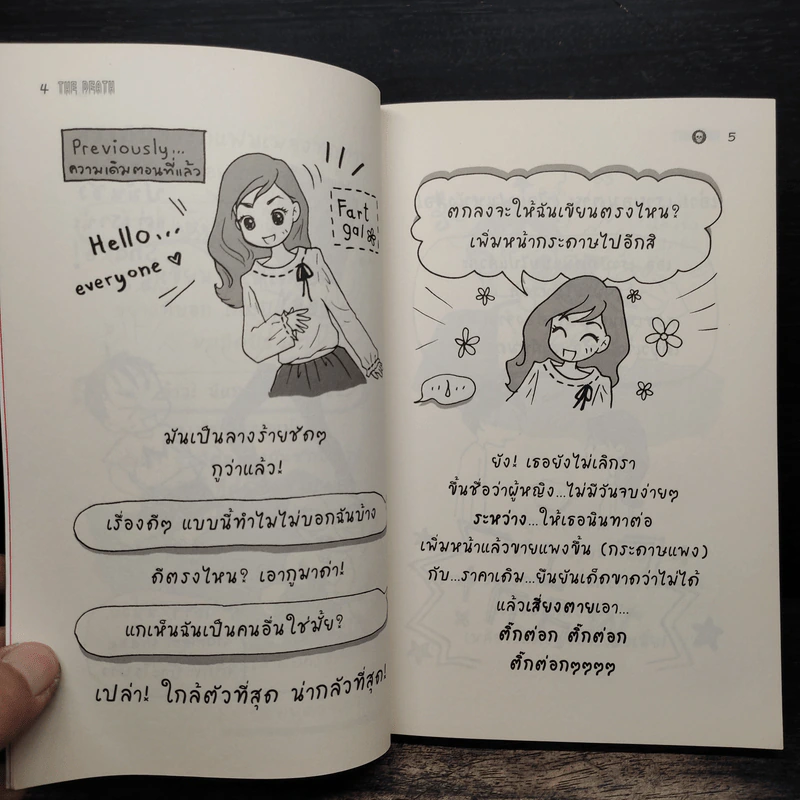 4 THE DEATH
Previously...
ความเดิมตอนที่แล้ว
Hello...
everyone
Fart
gal
มันเป็นลางร้ายชัดๆ
กูว่าแล้ว!
เรื่องดีๆ แบบนี้ทำไมไม่บอกฉันบ้าง
ดีตรงไหน? เอากูมาด่า!
แกเห็นฉันเป็นคนอื่นใช่มั้ย?
เปล่า! ใกล้ตัวที่สุด น่ากลัวที่สุด!
5
ตกลงจะให้ฉันเขียนตรงไหน?
เพิ่มหน้ากระดาษไปอีกสิ
ยัง! เธอยังไม่เลิกรา
ขึ้นชื่อว่าผู้หญิง...ไม่มีวันจบง่ายๆ
ระหว่าง...ให้เธอนินทาต่อ
เพิ่มหน้าแล้วขายแพงขึ้น (กระดาษแพง)
กับ...ราคาเดิม...ยืนยันเด็ดขาดว่าไม่ได้
แล้วเสี่ยงตายเอา...
ติ๊กต่อก ติ๊กต่อก
ติ๊กต่อกๆๆๆๆ